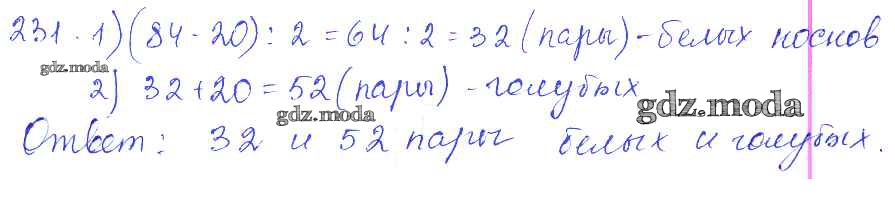 231. 1) (84 - 20) : 2 = 64 : 2 = 32 (пары) - белых носков
gdz.moda
2) 32 + 20 = 52 (пары) - голубых
gdz.moda
gdz.moda
Ответ: 32 и 52 пары белых и голубых.